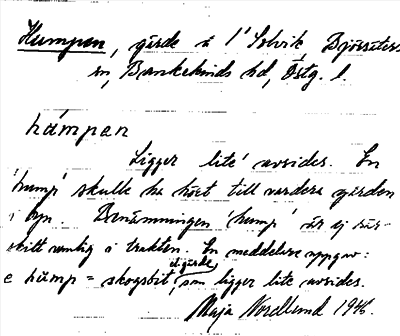 Humpen, gärde å 1/1 Solvik, Björsäters
sn, Bankekinds hd, Östg. l.
hámpen
Ligger lite avsides. En
'hump' skulle ha hört till vardera gården
i byn. Benämningen 'hump' är ej sär-
skilt vanlig i trakten. En meddelare uppgav:
e hump = skogsbit, el. gärde, som ligger lite avsides.
Maja Nordlund 1946.